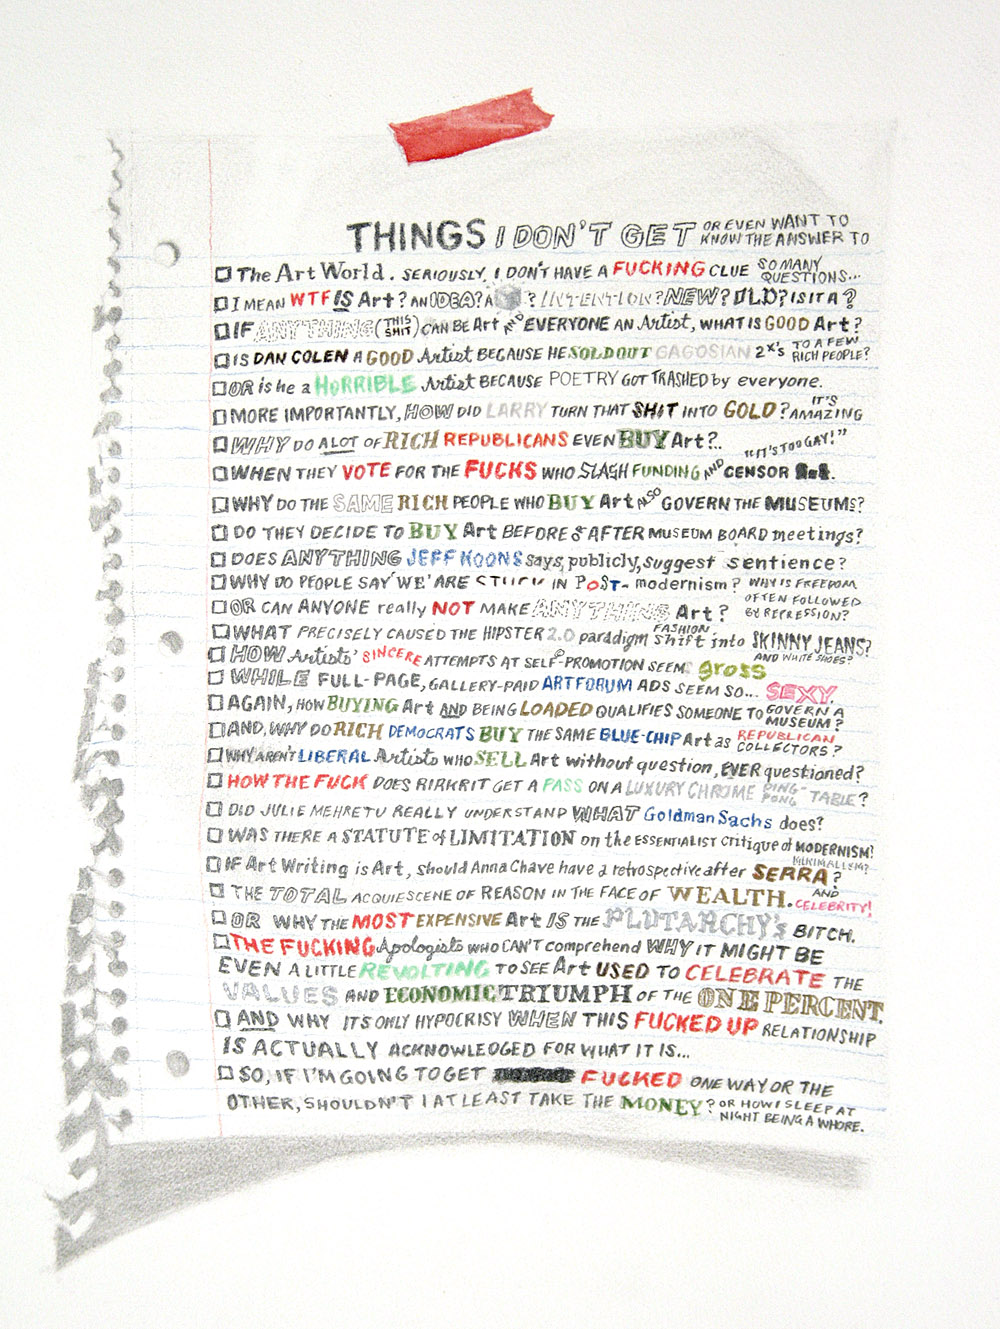 THINGS I DON'T GET OR EVEN WANT TO KNOW THE ANSWER TO
The Art World. SERIOUSLY, I DON'T HAVE A FUCKING CLUE SO MANY QUESTIONS...
I MEAN WTF IS Art? AN IDEA? A ? INTENTION? NEW? OLD? IS IT A ?
IF ANYTHING (THIS SHIT) CAN BE Art AND EVERYONE AN Artist, WHAT IS GOOD Art?
IS DAN COLEN A GOOD Artist BECAUSE HE SOLD OUT GAGOSIAN 2x's TO A FEW RICH PEOPLE?
OR is he a HORRIBLE Artist BECAUSE POETRY GOT TRASHED by everyone.
MORE IMPORTANTLY, HOW DID LARRY TURN THAT SHIT INTO GOLD? IT'S AMAZING
WHY DO ALOT OF RICH REPUBLICANS EVEN BUY Art?.. "IT'S TOO GAY!"
WHEN THEY VOTE FOR THE FUCKS WHO SLASH FUNDING AND CENSOR
WHY DO THE SAME RICH PEOPLE WHO BUY Art ALSO GOVERN THE MUSEUMS?
DO THEY DECIDE TO BUY Art BEFORE & AFTER MUSEUM BOARD meetings?
DOES ANYTHING JEFF KOONS says, publicly, suggest sentience?
WHY DO PEOPLE SAY 'WE' ARE STUCK IN POST- modernism? WHY IS FREEDOM OFTEN FOLLOWED BY REPRESSION?
OR CAN ANYONE really NOT MAKE ANYTHING Art?
WHAT PRECISELY CAUSED THE HIPSTER 2.0 paradigm FASHION shift into SKINNY JEANS? AND WHITE SHOES?
HOW Artists' SINCERE ATTEMPTS AT SELF-PROMOTION SEEM gross
WHILE FULL-PAGE, GALLERY-PAID ARTFORUM ADS SEEM SO... SEXY.
AGAIN, HOW BUYING Art AND BEING LOADED QUALIFIES SOMEONE TO GOVERN A MUSEUM?
AND, WHY DO RICH DEMOCRATS BUY THE SAME BLUE-CHIP Art as REPUBLICAN COLLECTORS?
WHY AREN'T LIBERAL Artists WHO SELL Art without question, EVER questioned?
HOW THE FUCK DOES RIRKRIT GET A PASS ON A LUXURY CHROME PING-PONG TABLE?
DID JULIE MEHRETU REALLY UNDERSTAND WHAT Goldman Sachs does?
WAS THERE A STATUTE of LIMITATION on the ESSENTIALIST critique of MODERNISM? MINIMALISM?
IF Art Writing is Art, should Anna Chave have a retrospective after SERRA?
THE TOTAL ACQUIESCENE OF REASON IN THE FACE OF WEALTH. AND CELEBRITY!
OR WHY THE MOST EXPENSIVE Art IS THE PLUTARCHY's BITCH.
THE FUCKING Apologists WHO CAN'T comprehend WHY IT MIGHT BE
EVEN A LITTLE REVOLTING TO SEE Art USED TO CELEBRATE THE
VALUES AND ECONOMIC TRIUMPH OF THE ONE PERCENT.
AND WHY IT'S ONLY HYPOCRISY WHEN THIS FUCKED UP RELATIONSHIP
IS ACTUALLY ACKNOWLEDGED FOR WHAT IT IS...
SO, IF I'M GOING TO GET FUCKED ONE WAY OR THE
OTHER, SHOULDN'T I AT LEAST TAKE THE MONEY? OR HOW I SLEEP AT NIGHT BEING A WHORE.